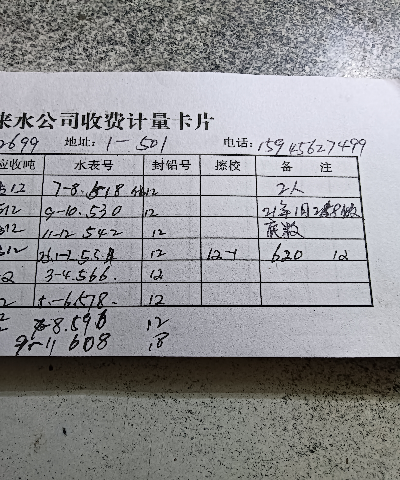 来水公司收费计量卡片
2699 地址: 1-501 电话: 15945627499
应收吨 水表号 封铅号 擦校 备 注
12 7-8. 518 12 2人
12 9-10. 530 12 21年1月
12 11-12 542 12 底数
12 1-2. 554 12 12-1 620 12
2 3-4. 566. 12
2 5-6. 578. 12
7-8. 596 12
9-11 608 18